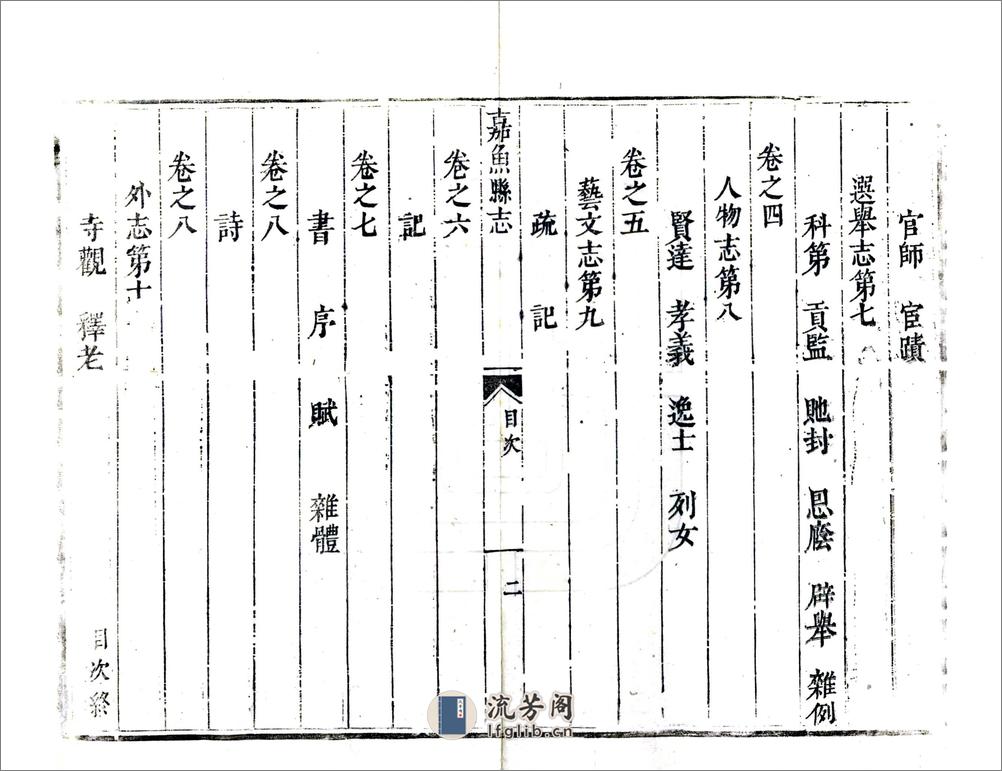 官師　宦蹟
選舉志第七
科第　貢監　貤封　恩廕　辟舉　雜例
卷之四
人物志第八
賢達　孝義　逸士　列女
卷之五
藝文志第九
疏　記
嘉魚縣志　目次　二
卷之六
記
卷之七
書　序　賦　雜體
卷之八
詩
卷之八
外志第十
寺觀　釋老
目次終
流芳阁
lfglib.cn